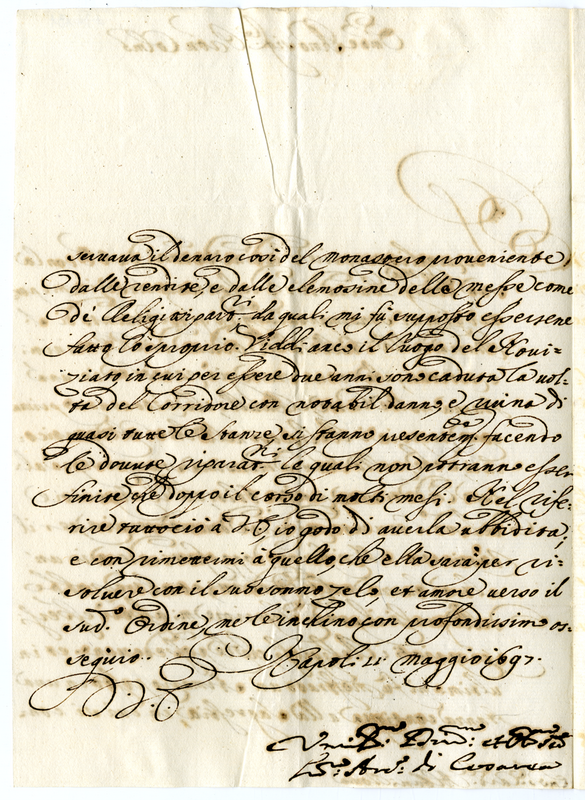 servava il denaro così del monastero proveniente
dalle rendite, e dalle elemosine delle messe come
de' Religiosi part.ri da quali mi fù supposto essersene
fatto lo sproprio. Viddi anco il luogo del Novi-
ziato in cui per essere due anni sono caduta la vol-
ta del Corridore con notabil danno, e ruina di
quasi tutte le stanze, si stanno presentem.te facendo
le dovute riparat.ni le quali non potranno esser
finite che doppo il corso di molti mesi. Nel rife-
rire tuttociò à V. E. io godo d' averla ubbidita;
e con rimettermi à quello, che ella sarà per ri-
solvere con il suo sommo zelo, et amore verso il
sud.o Ordine, me le inchino con profondissimo os-
sequio. Napoli 11 maggio 1697.
V. E.
di